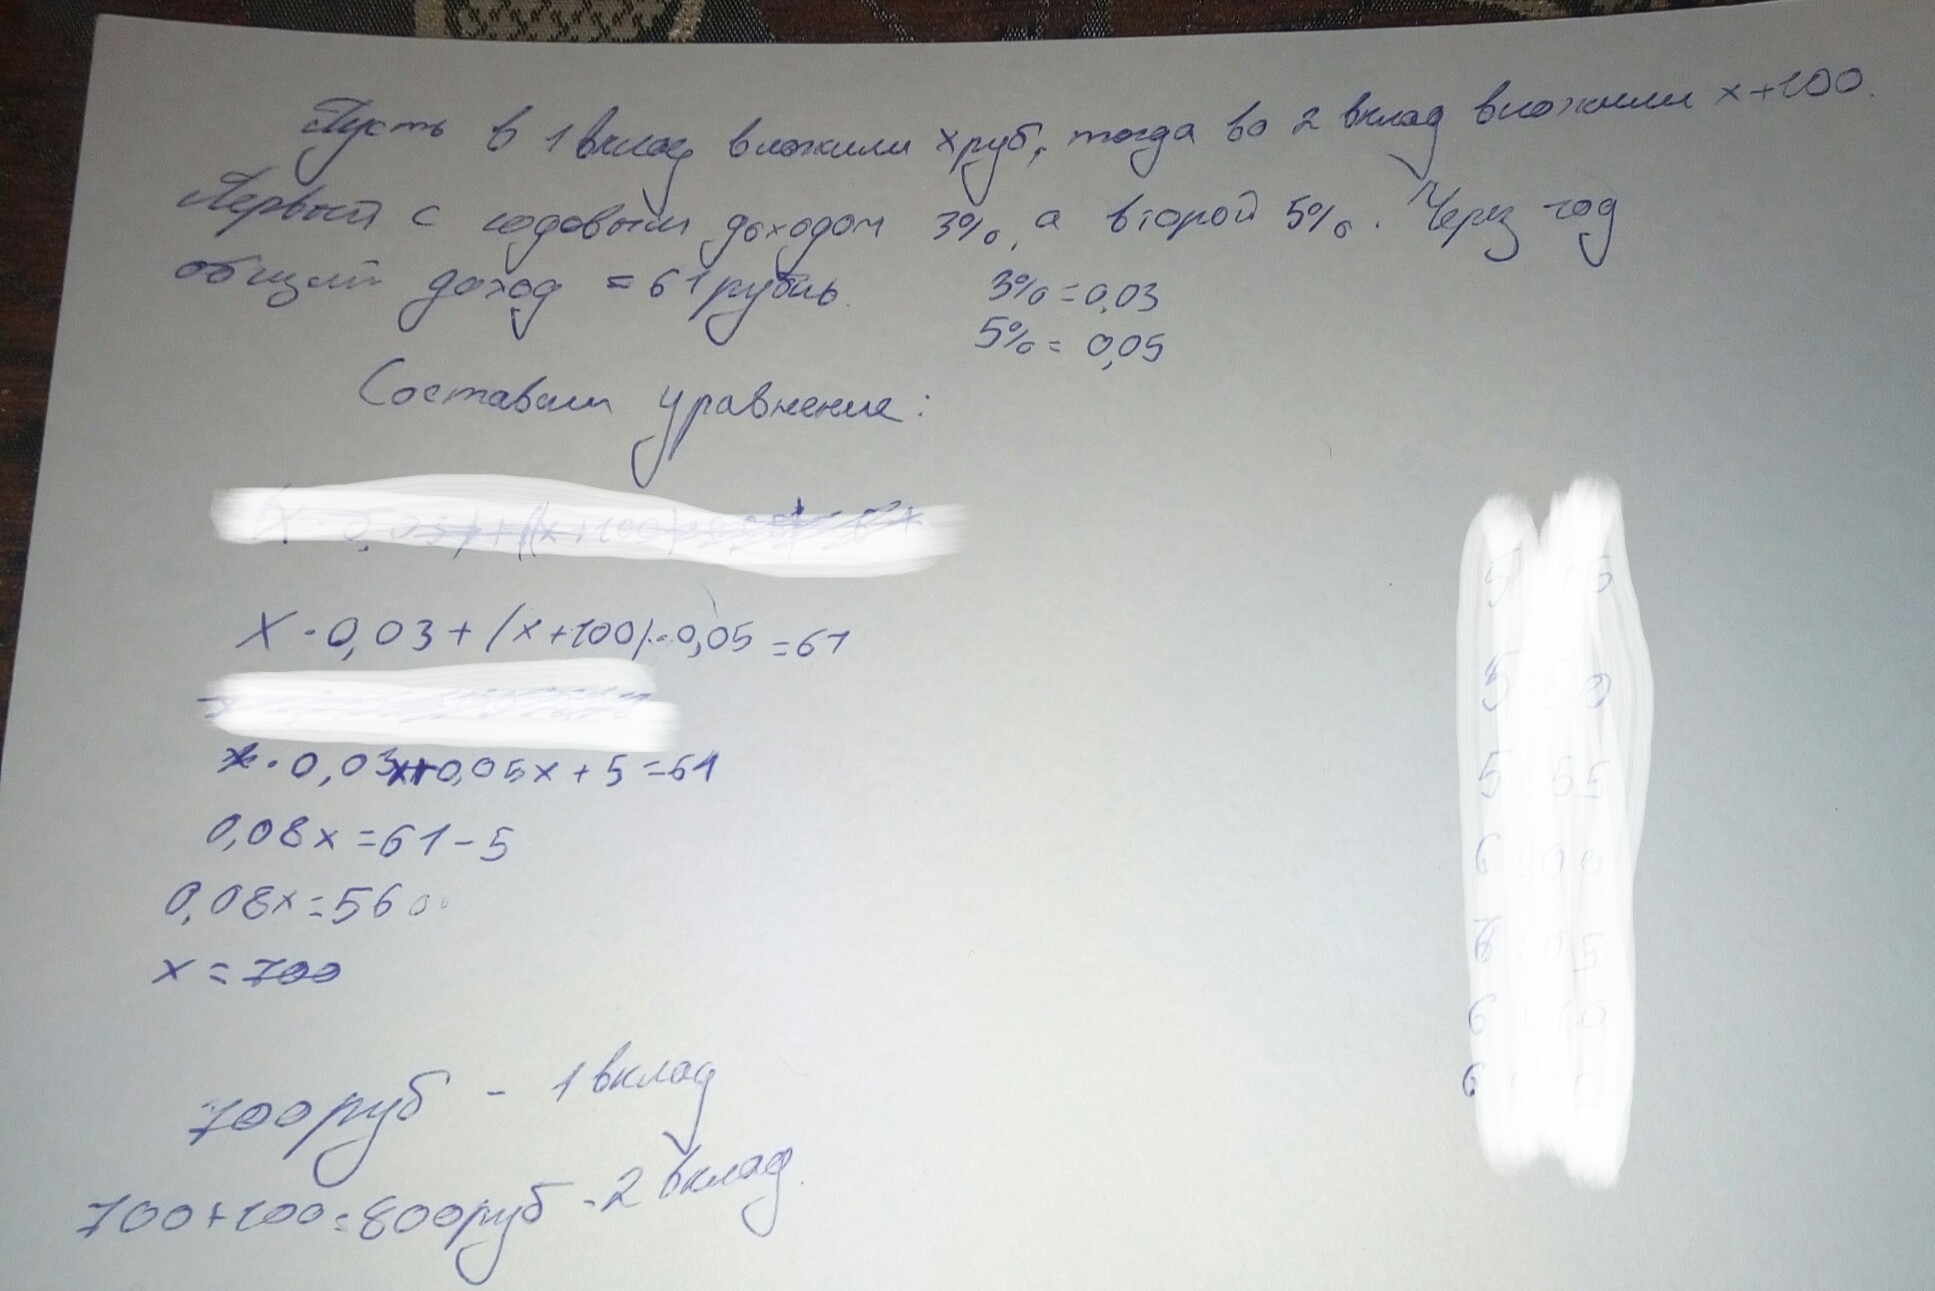 Пусть в 1 вклад вложили x руб, тогда во 2 вклад вложили x+100.
Первый с годовым доходом 3%, а второй 5%. Через год
общий доход = 61 рубль.
3% = 0,03
5% = 0,05
Составим уравнение:
X · 0,03 + (x+100) · 0,05 = 61
0,03x+0,05x + 5 = 61
0,08x = 61 - 5
0,08x = 56
x = 700
700 руб - 1 вклад
700+100=800 руб - 2 вклад.